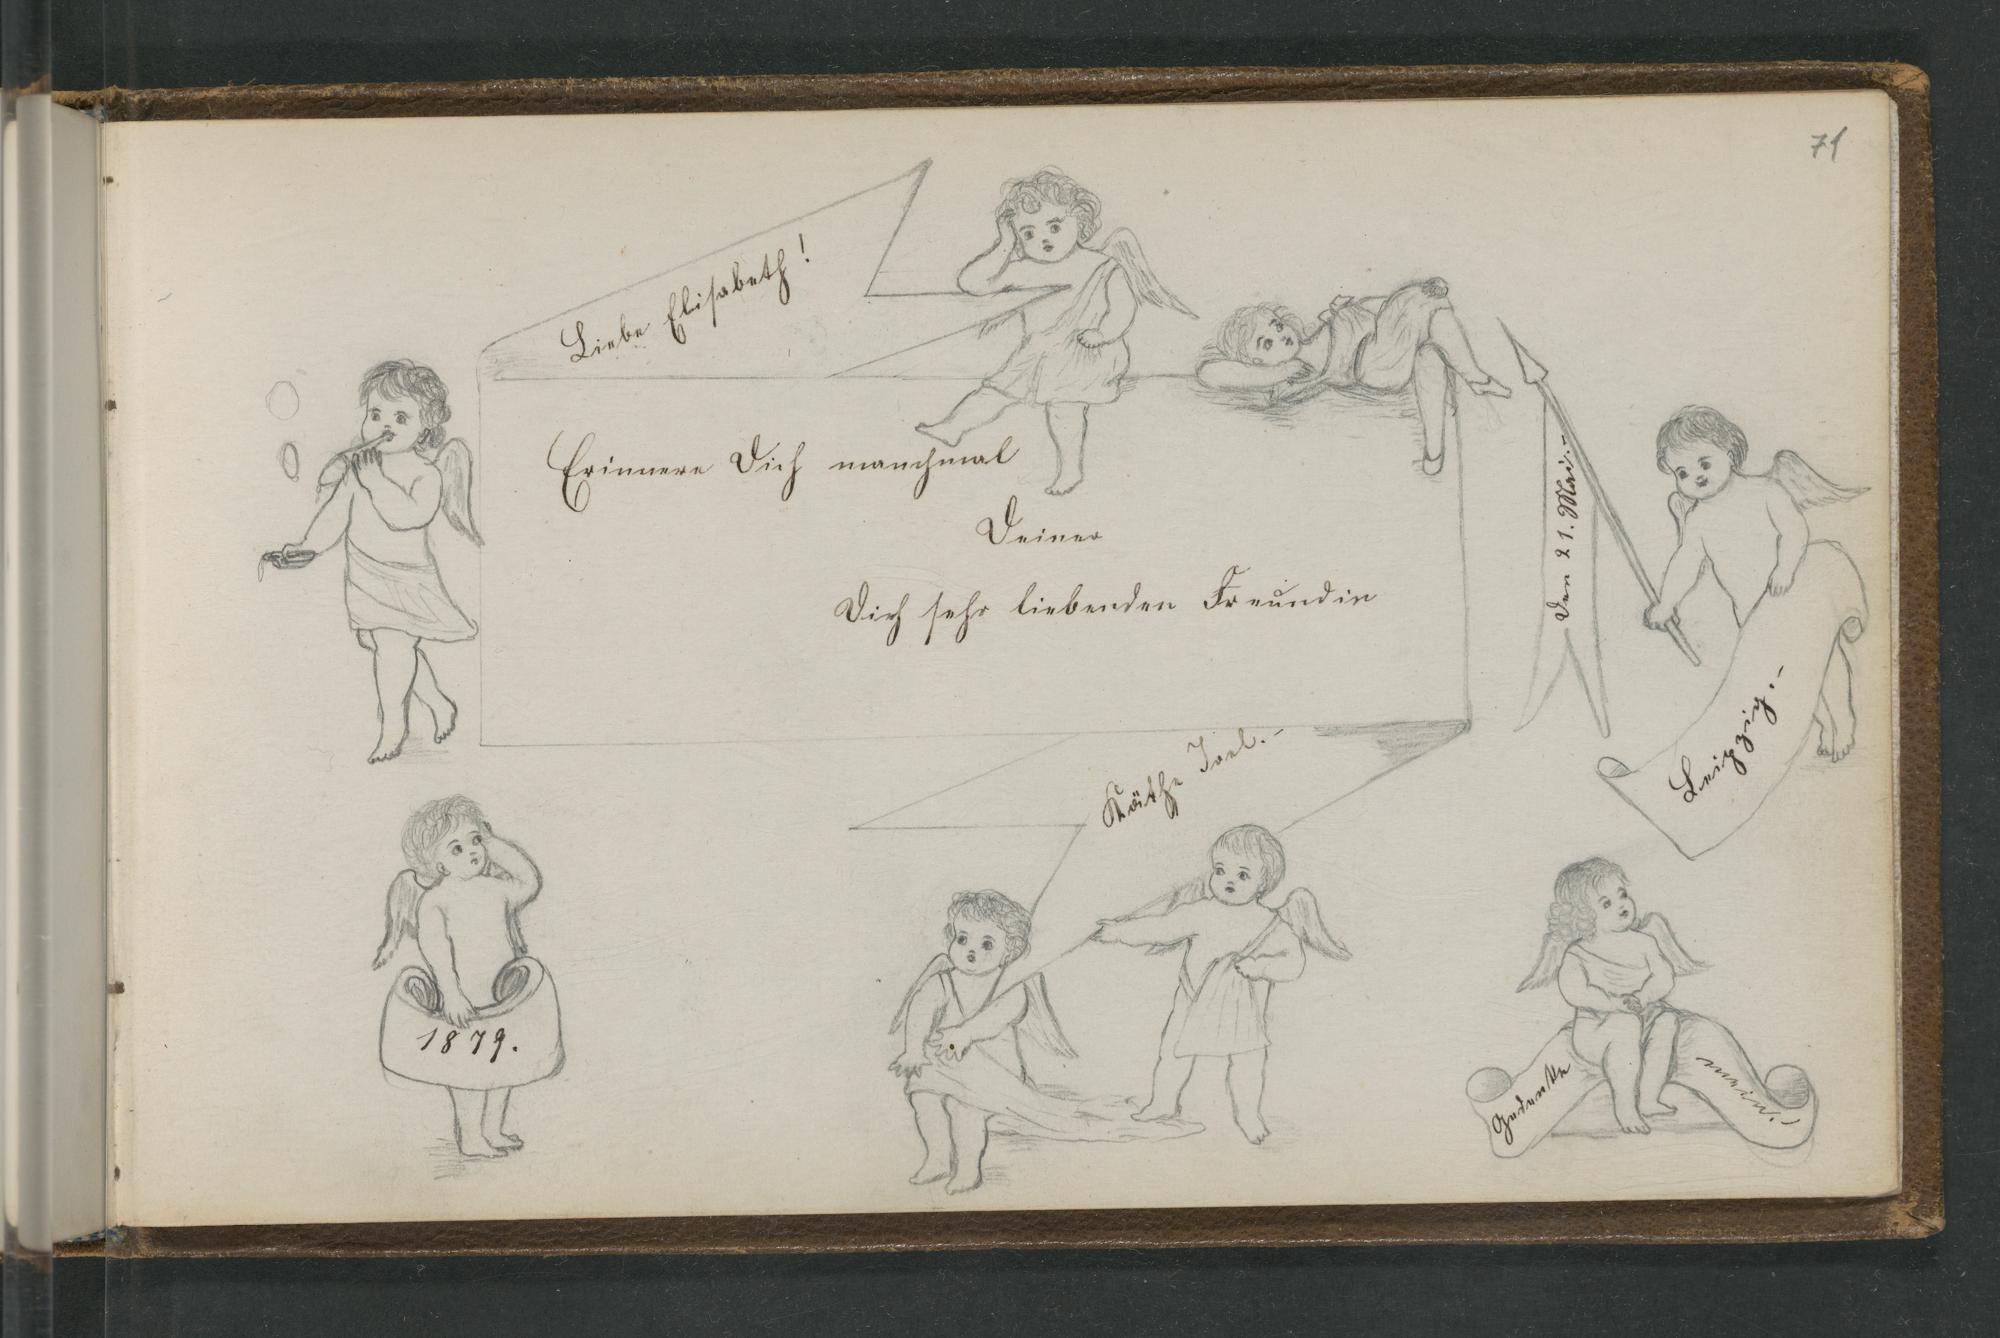 71
Liebe Elisabeth!
Erinnere Dich manchmal
Deiner
Dich sehr liebenden Freundin
Käthe Joel.-
Den 21. Mai.-
Leipzig.-
1879.
Gedenke mein!-